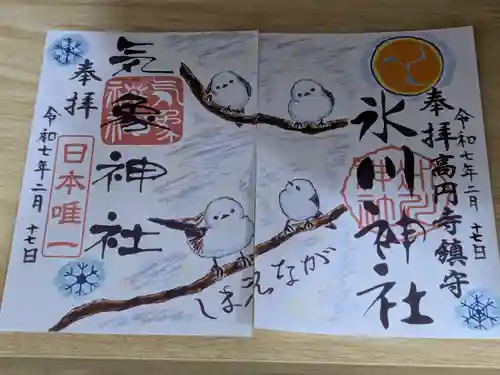 奉拝
高円寺鎮守
氷川神社
令和七年二月十七日
しまえなが
奉拝
気象神社
日本唯一
令和七年二月十七日